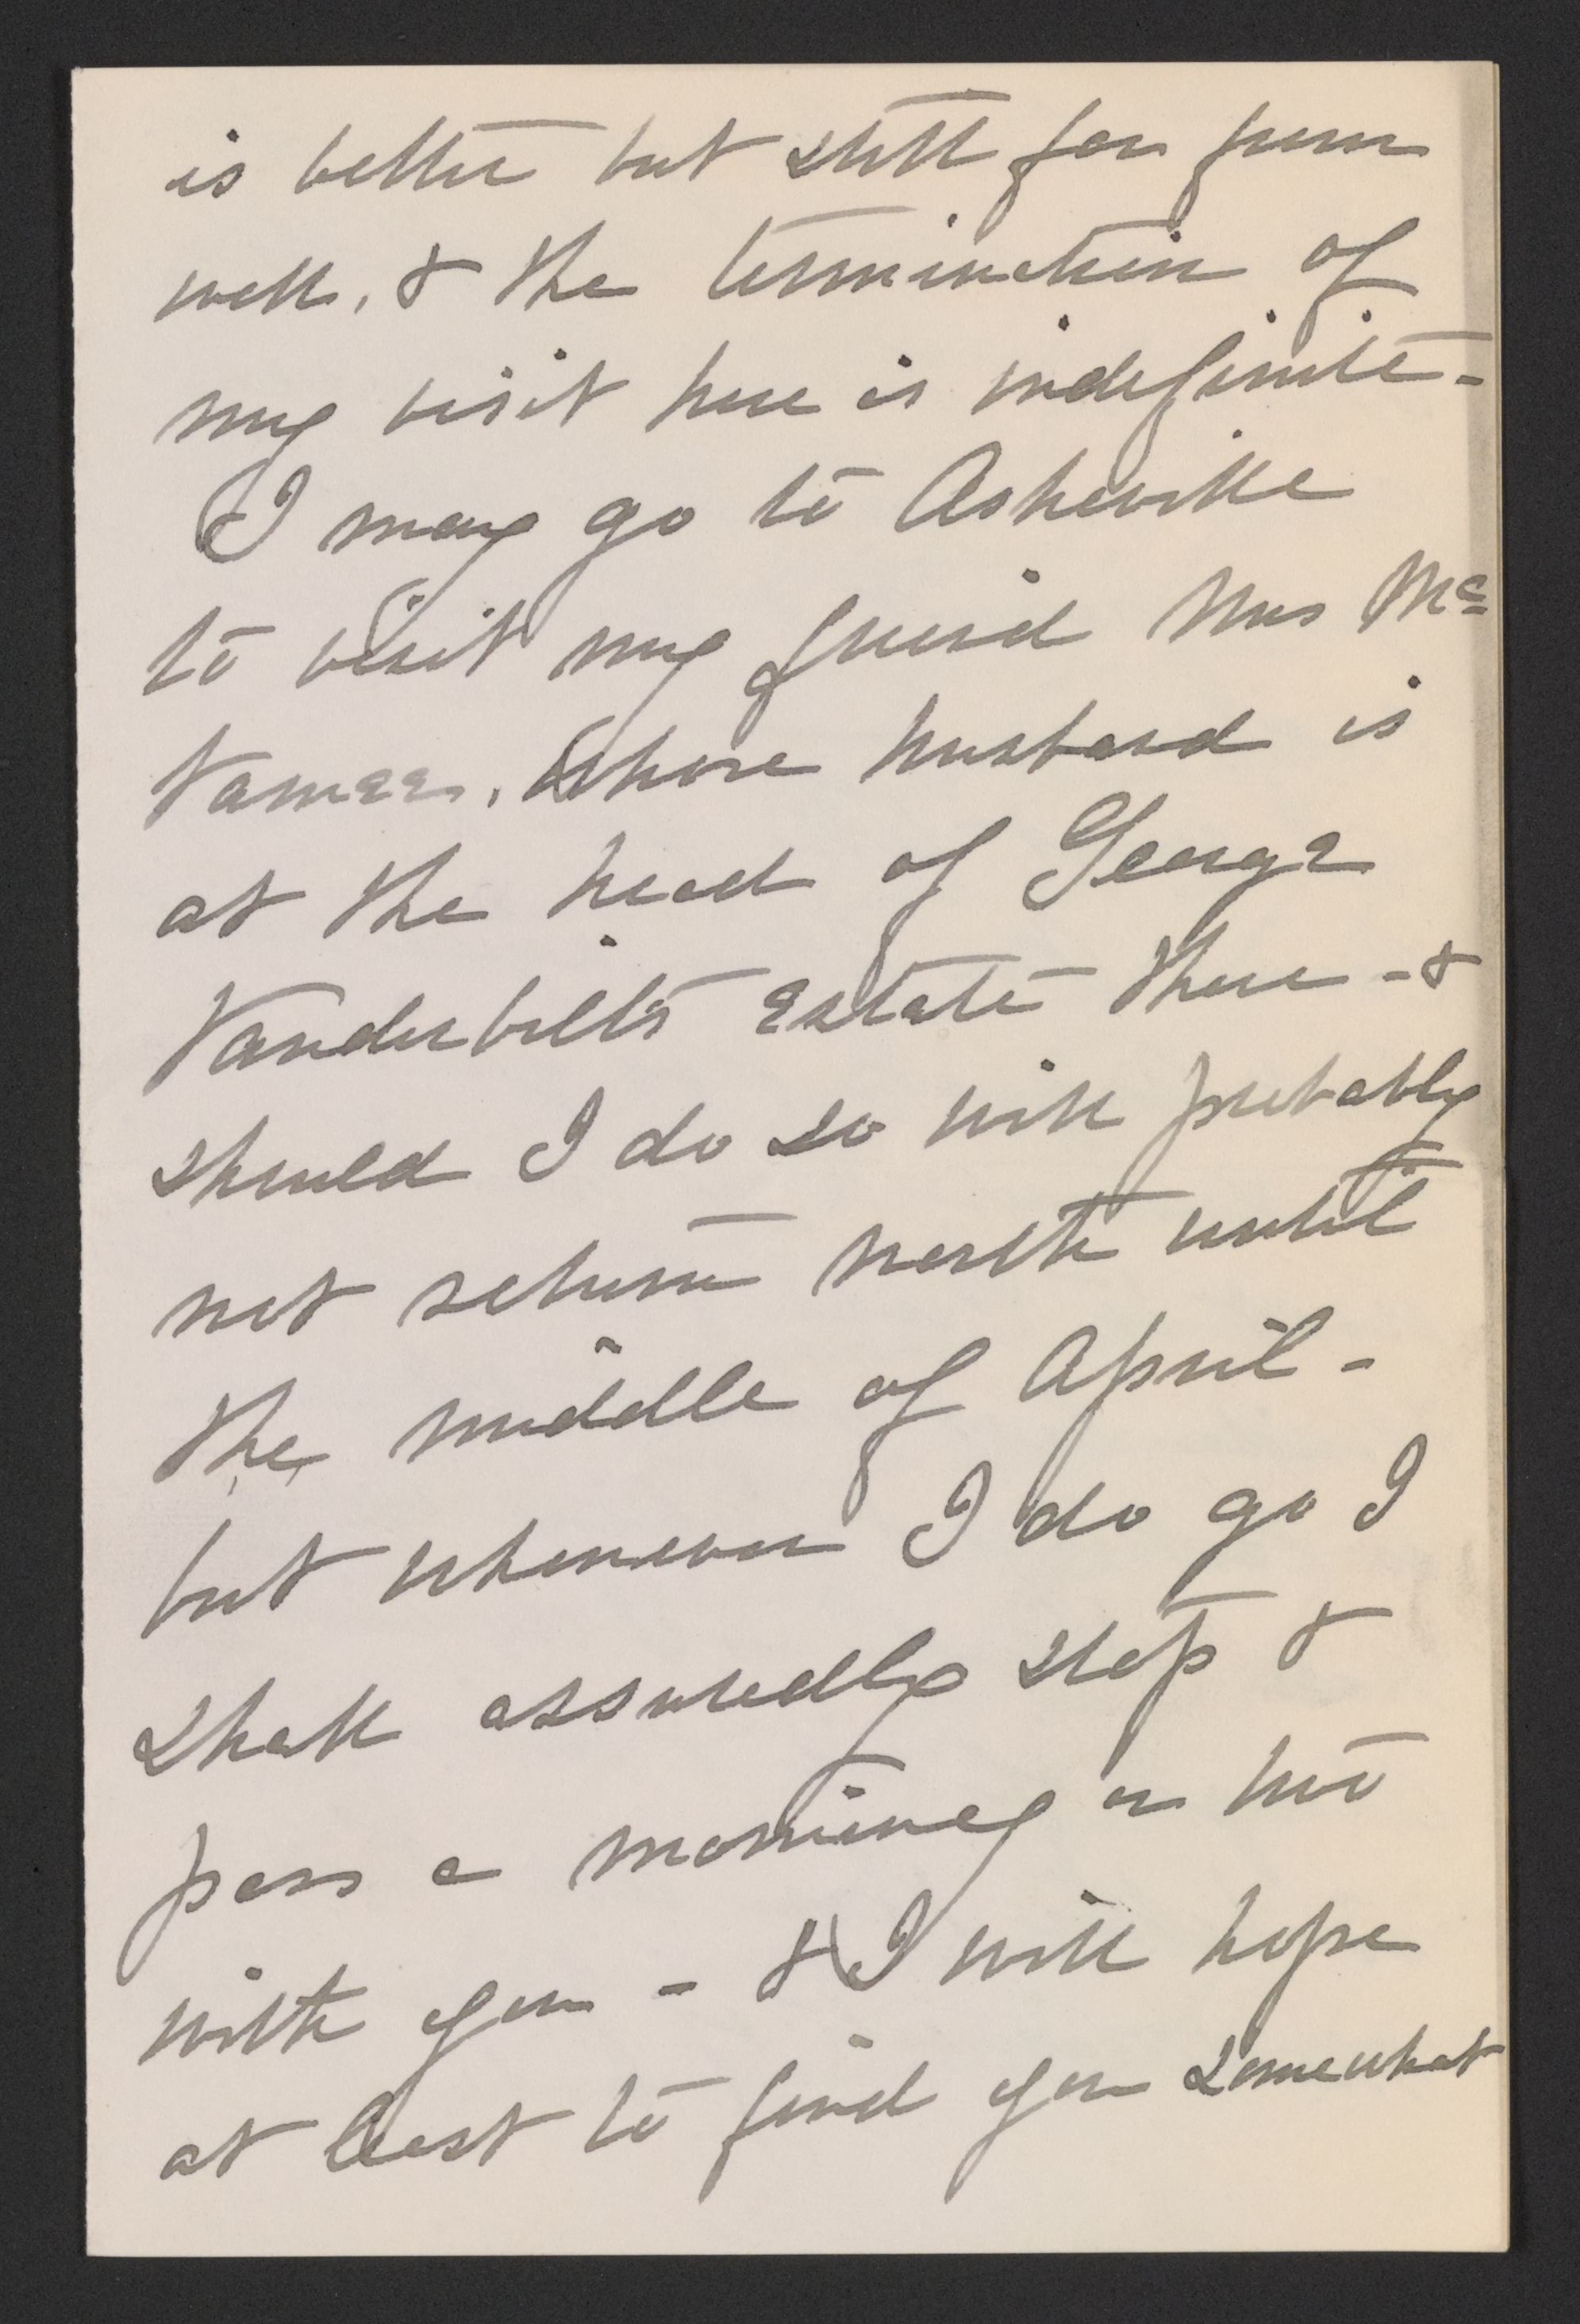 is better but still far from
well, & the termination of
my visit here is indefinite -
I may go to Asheville
to visit my friend Mrs Mc
Namee, whose husband is
at the head of George
Vanderbilt's estate there - &
should I do so will probably
not return north until
the middle of April -
but whenever I do go I
shall assuredly stop &
pass a morning or two
with you - & I will hope
at least to find you somewhat